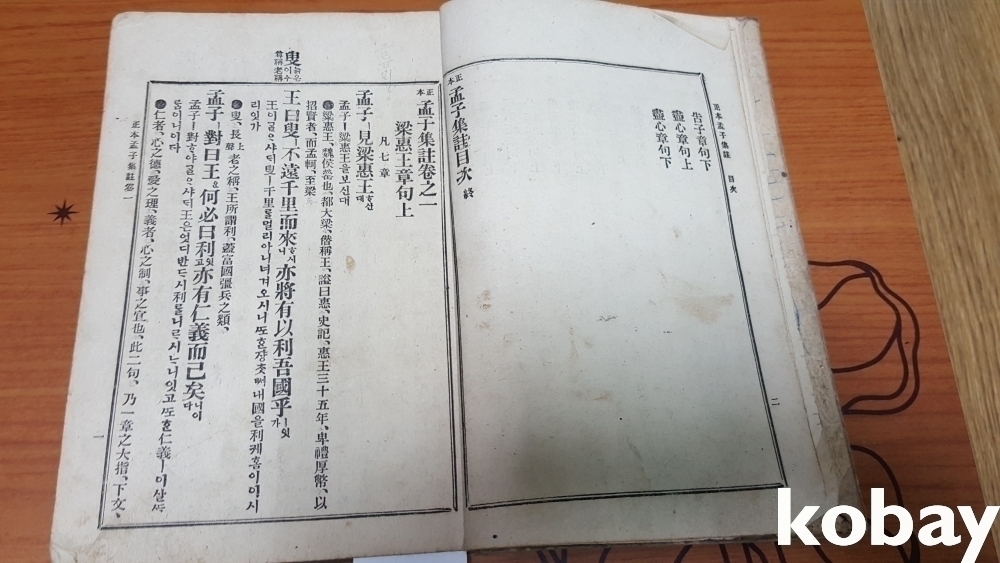 正本孟子集註 目次
告子章句下
盡心章句上
盡心章句下
二
正本 孟子集註目次 終
叟 늙은이수 尊稱老稱
正本 孟子集註卷之一
梁惠王章句上
凡七章
孟子ㅣ見梁惠王ᄒᆞ신대
孟子ㅣ梁惠王을보신대
梁惠王、魏侯罃也、都大梁、僭稱王、謚曰惠、史記、惠王三十五年、卑禮厚幣、以
招賢者、而孟軻、至梁
王曰叟ㅣ不遠千里而來ᄒᆞ시니亦將有以利吾國乎ㅣ잇가
王이ᄀᆞᆯᄋᆞ샤ᄃᆡ叟ㅣ千里를멀리아니너겨오시니ᄯᅩᄒᆞᆫ쟝ᄎᆞᆺᄡᅥ내國을利케홈이이시
리잇가
叟、長上聲老之稱、王所謂利、蓋富國彊兵之類、
孟子ㅣ對曰王은何必曰利잇고亦有仁義而已矣니이다
孟子ㅣ對ᄒᆞ야ᄀᆞᆯᄋᆞ샤ᄃᆡ王은엇디반ᄃᆞ시利를니ᄅᆞ시ᄂᆞ니잇고ᄯᅩᄒᆞᆫ仁義ㅣ이실ᄯᆞ
ᄅᆞᆷ이니이다
仁者、心之德、愛之理、義者、心之制、事之宜也、此二句、乃一章之大指、下文、
正本孟子集註卷一
一
kobay